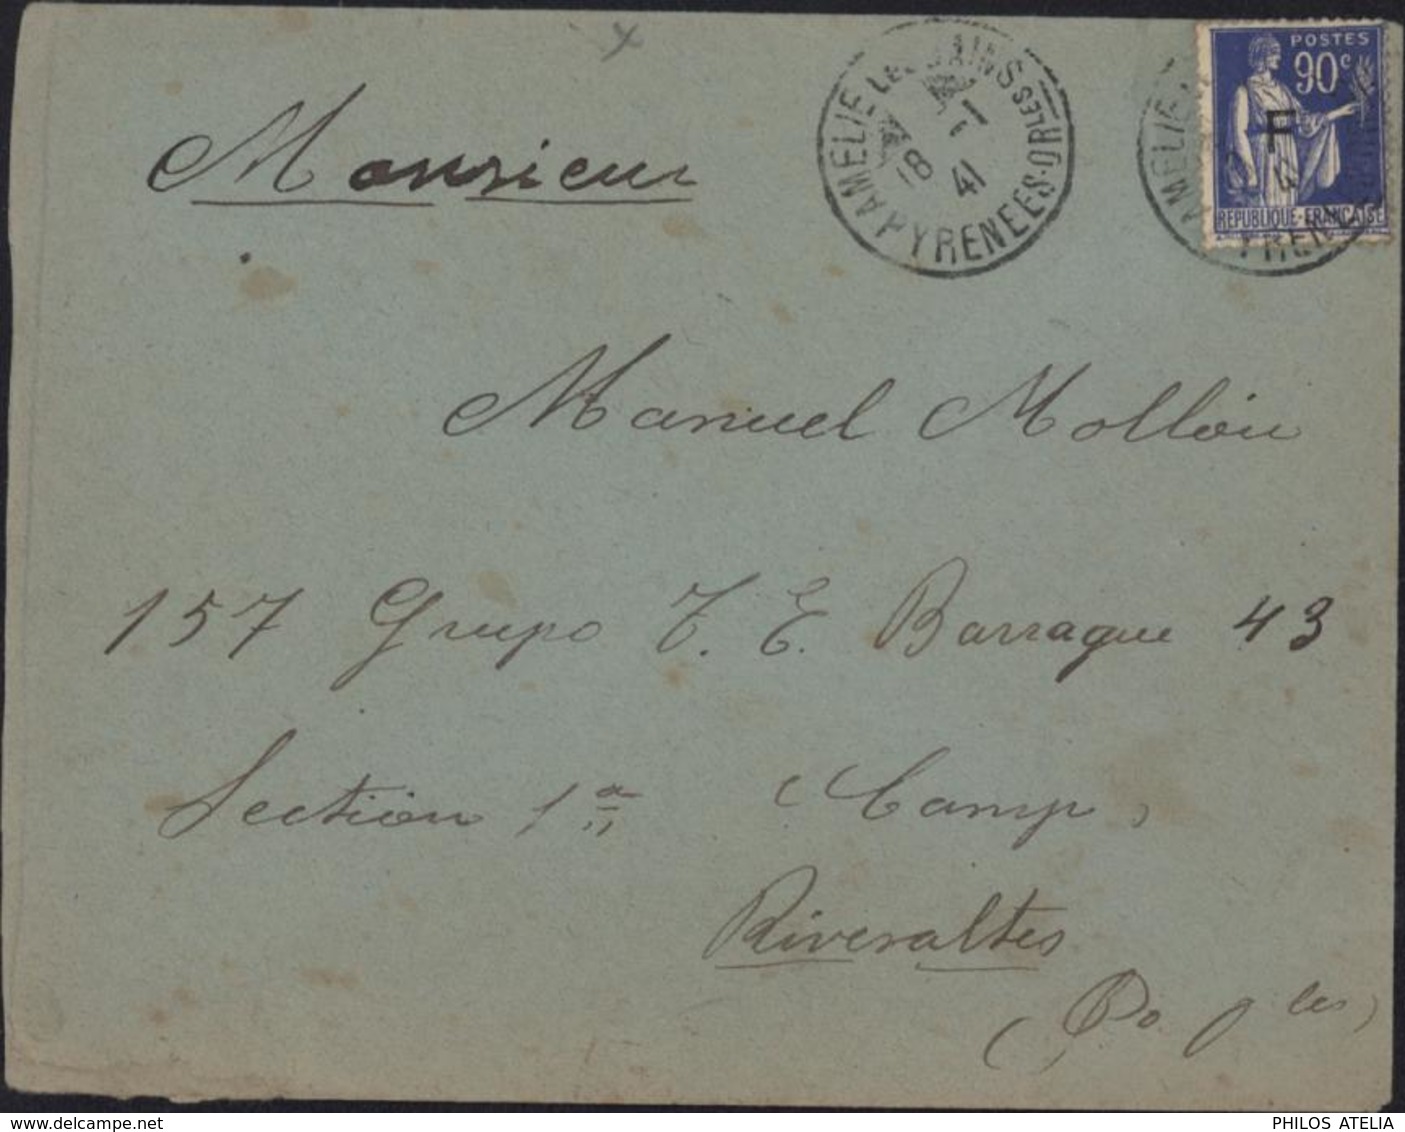 AMELIE LES BAINS
18
1
41
PYRENEES-ORLES
POSTES
90c
F
REPUBLIQUE-FRANÇAISE
Monsieur
Manuel Molleu
157 Grupo T. E. Barraque 43
Section 1ª (Camp)
Riveraltes
www.delcampe.net
PHILOS ATELIA